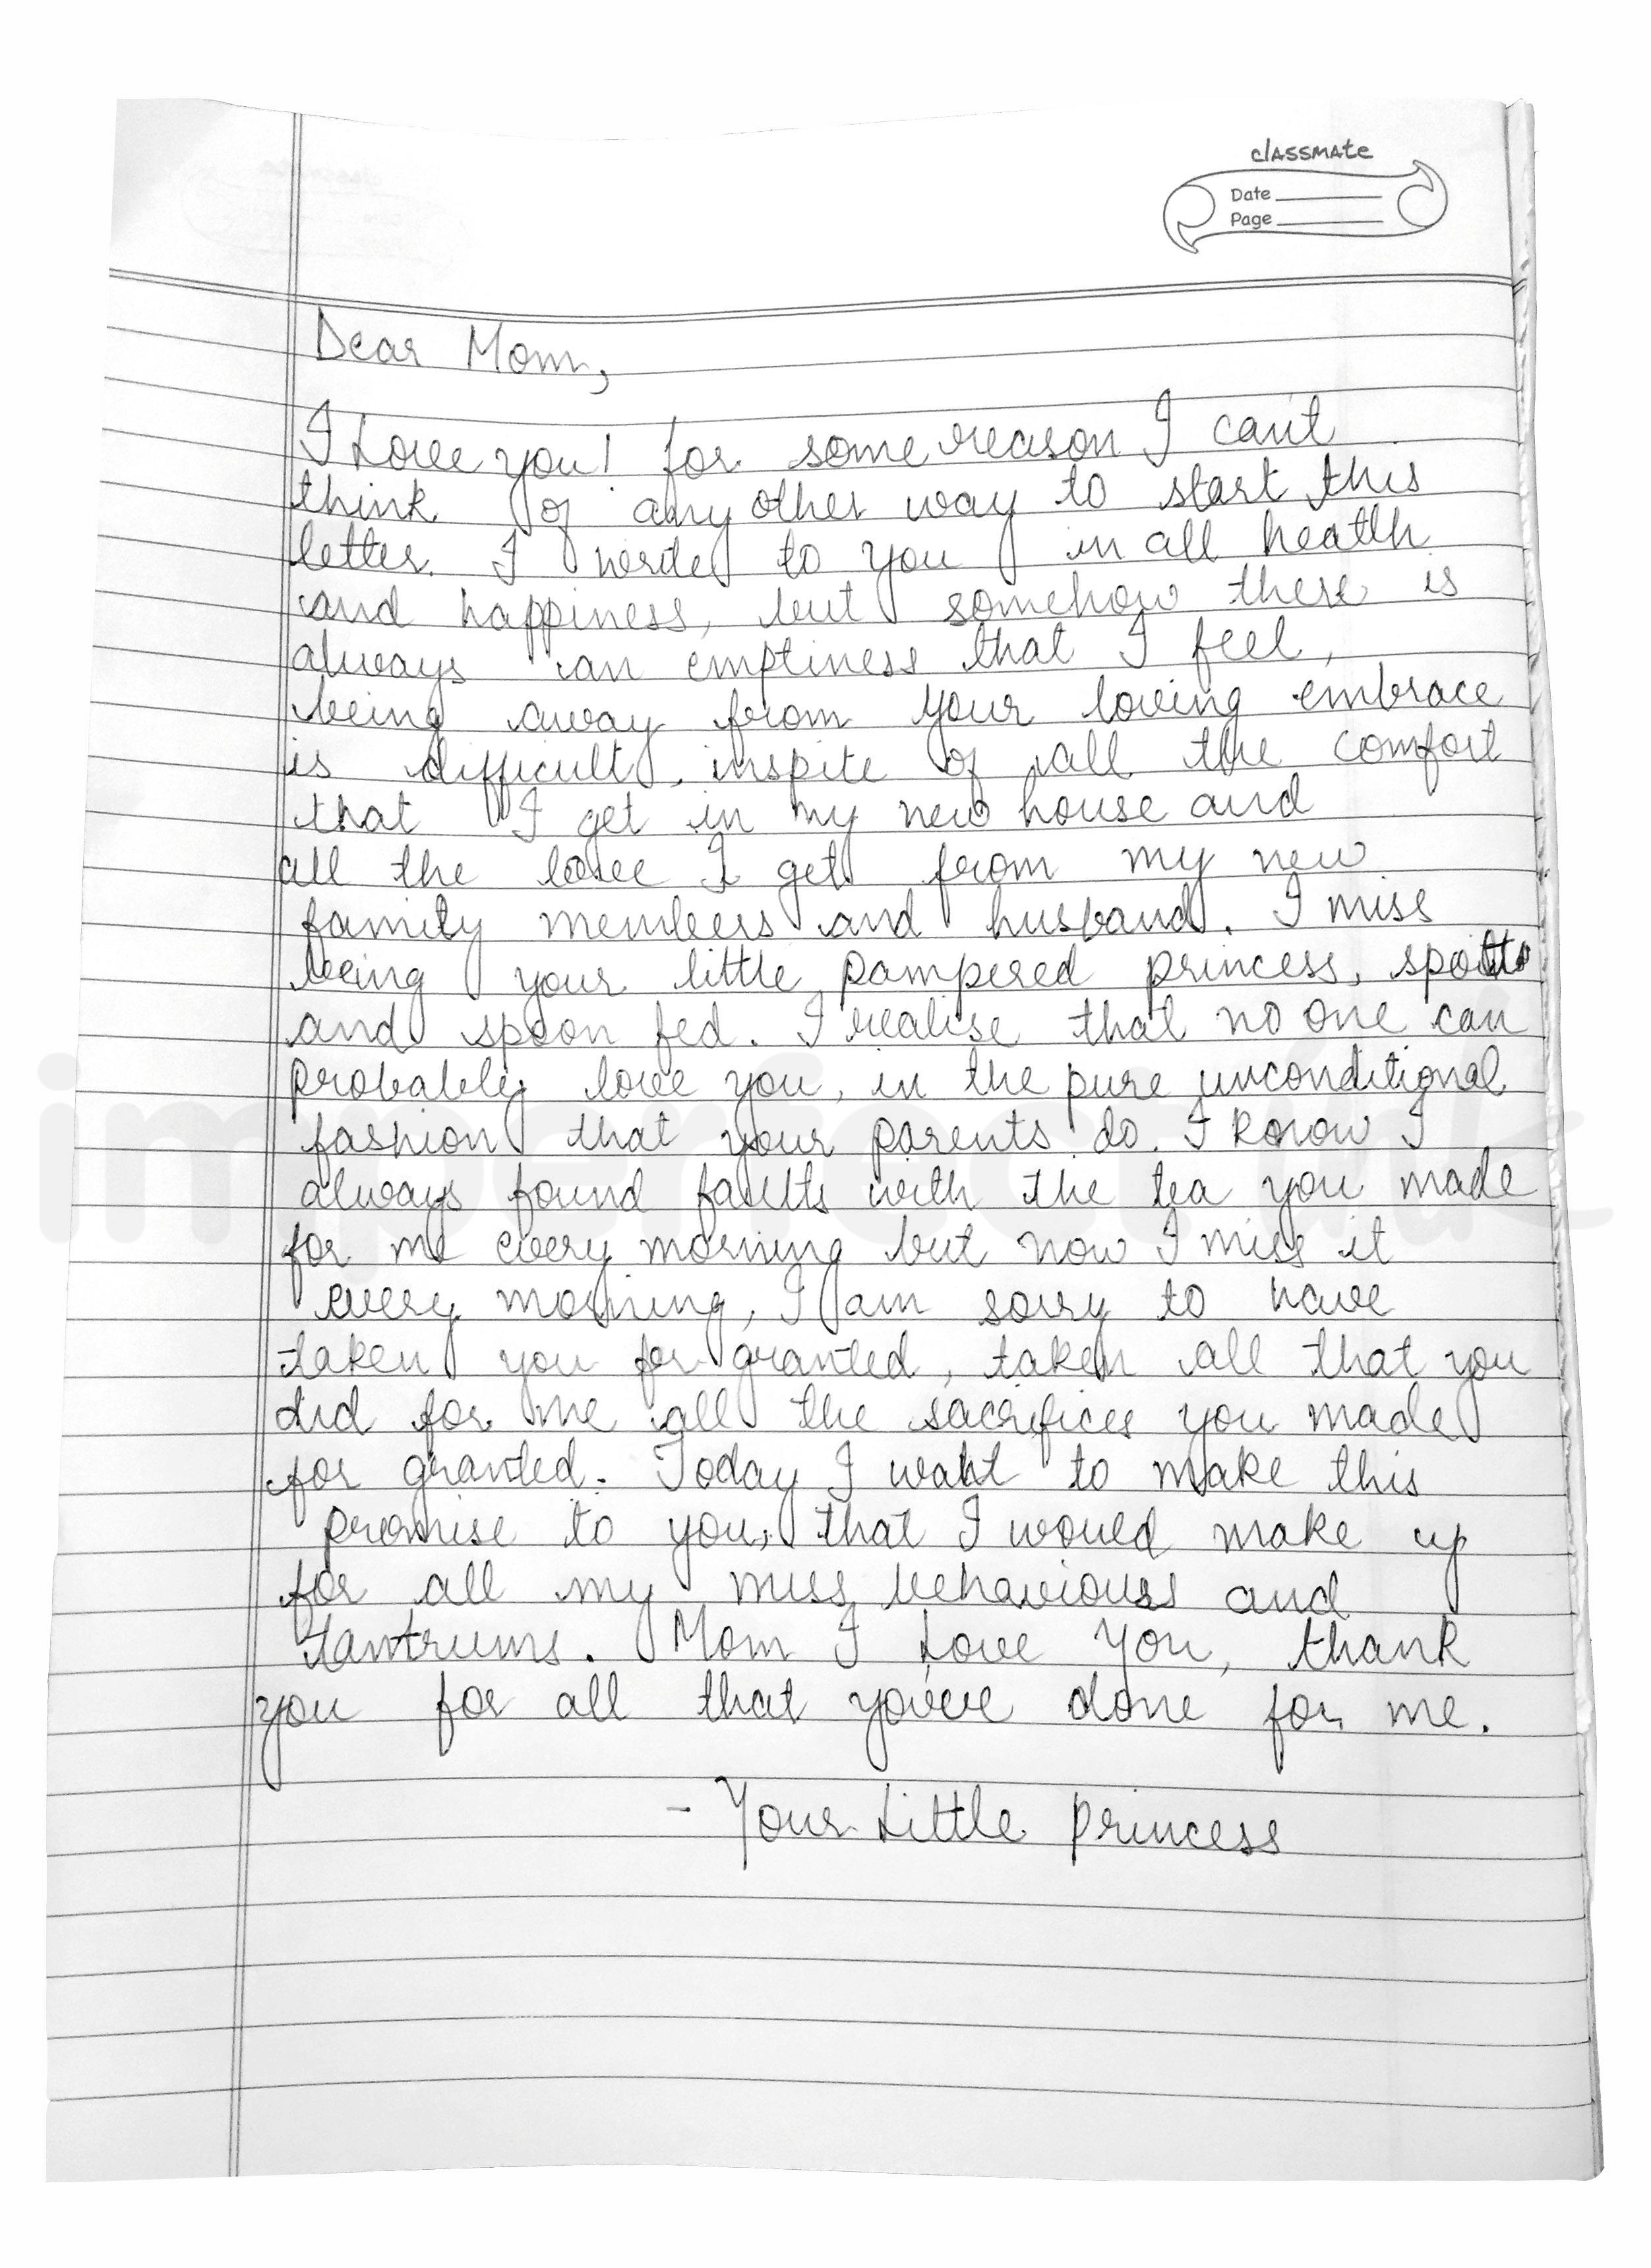 classmate
Date
Page
Dear Mom,
I Love you! for some reason I can't
think of any other way to start this
letter. I write to you in all health
and happiness, but somehow there is
always an emptiness that I feel,
being away from your loving embrace
is difficult, inspite of all the comfort
that I get in my new house and
all the love I get from my new
family members and husband. I miss
being your little pampered princess,
and spoon fed. I realise that no one can
probably love you, in the pure unconditional
fashion that your parents do. I know I
always found faults with the tea you made
for me every morning but now I miss it
every morning, I am sorry to have
taken you for granted, taken all that you
did for me all the sacrifices you made
for granted. Today I want to make this
promise to you, that I would make up
for all my miss behaviours and
tantrums. Mom I Love you, thank
you for all that you've done for me.
- Your Little princess